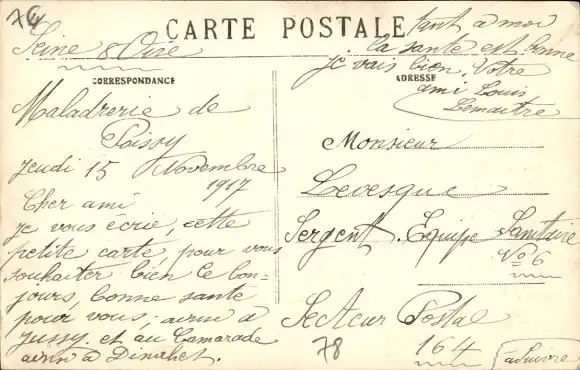 76
CARTE POSTALE
Seine & Oise
CORRESPONDANCE
Maladrerie de
Poissy
Jeudi 15 Novembre
1917
Cher ami
je vous écrie, cette
petite carte, pour vous
souhaiter bien le bon-
jours, bonne santé
pour vous, ainsi à
Jussy. et au Camarade
ainsi à Dinahet.
tant à moi
la santé est bonne
je vais bien. Votre
ami Louis
Lemaitre
ADRESSE
Monsieur
Levesque
Sergent. Equipe Sanitaire
No 6
Secteur Postal
164
78
à suivre